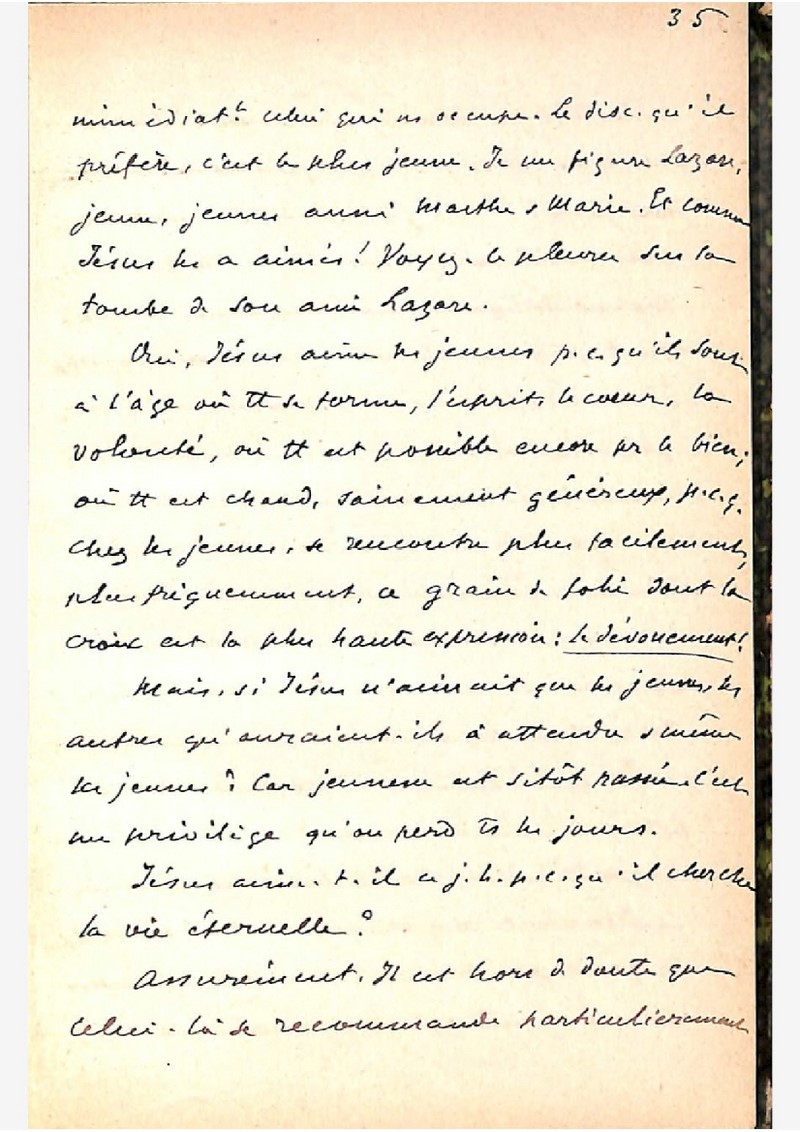 35
immédiat.t celui qui ns occupe. Le disc. qu'il
préfère, c'est le plus jeune. Je me figure Lazare,
jeune, jeunes aussi Marthe & Marie. Et comme
Jésus les a aimés! Voyez-le pleurer sur la
tombe de son ami Lazare.
Oui, Jésus aime les jeunes p.c.qu'ils sont
à l'âge où tt se forme, l'esprit, le cœur, la
volonté, où tt est possible encore pr le bien;
où tt est chaud, sainement généreux, p.c.q.
chez les jeunes, se rencontre plus facilement,
plus fréquemment, ce grain de folie dont la
croix est la plus haute expression: le dévouement!
Mais, si Jésus n'aimait que les jeunes, les
autres qu'auraient-ils à attendre & même
les jeunes? Car jeunesse est sitôt passée. C'est
un privilège qu'on perd ts les jours.
Jésus aime-t-il ce j.h. p.c.qu'il cherche
la vie éternelle?
Assurément. Il est hors de doute que
celui-là se recommande particulièrement